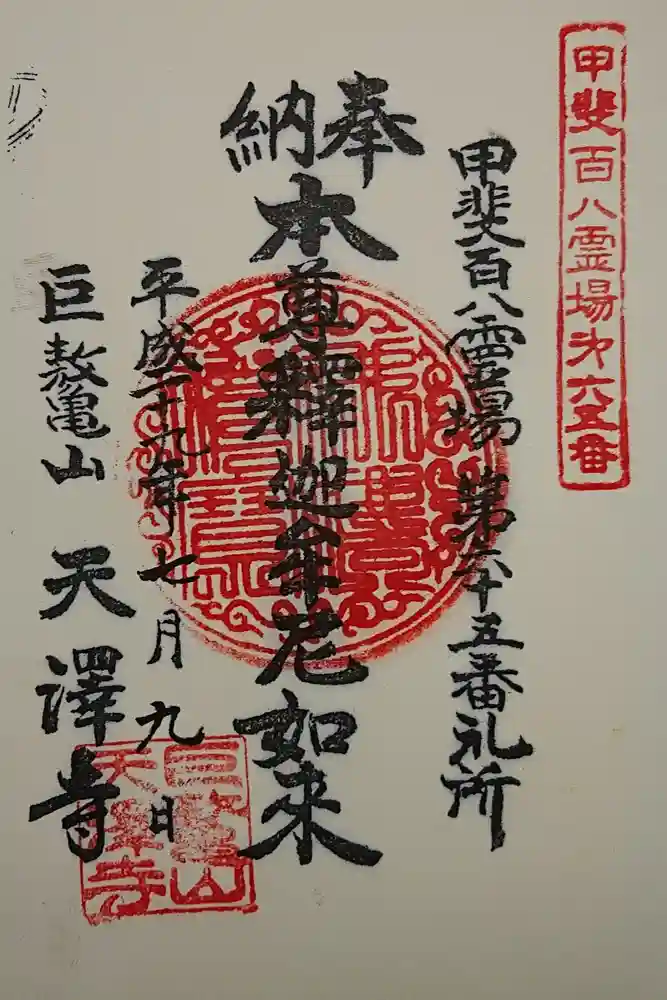 甲斐百八霊場第六五番
甲斐百八霊場 第六十五番礼所
奉納
本尊釋迦牟尼如来
平成二十九年七月九日
巨鼇山 天澤寺
巨鼇山
天澤寺